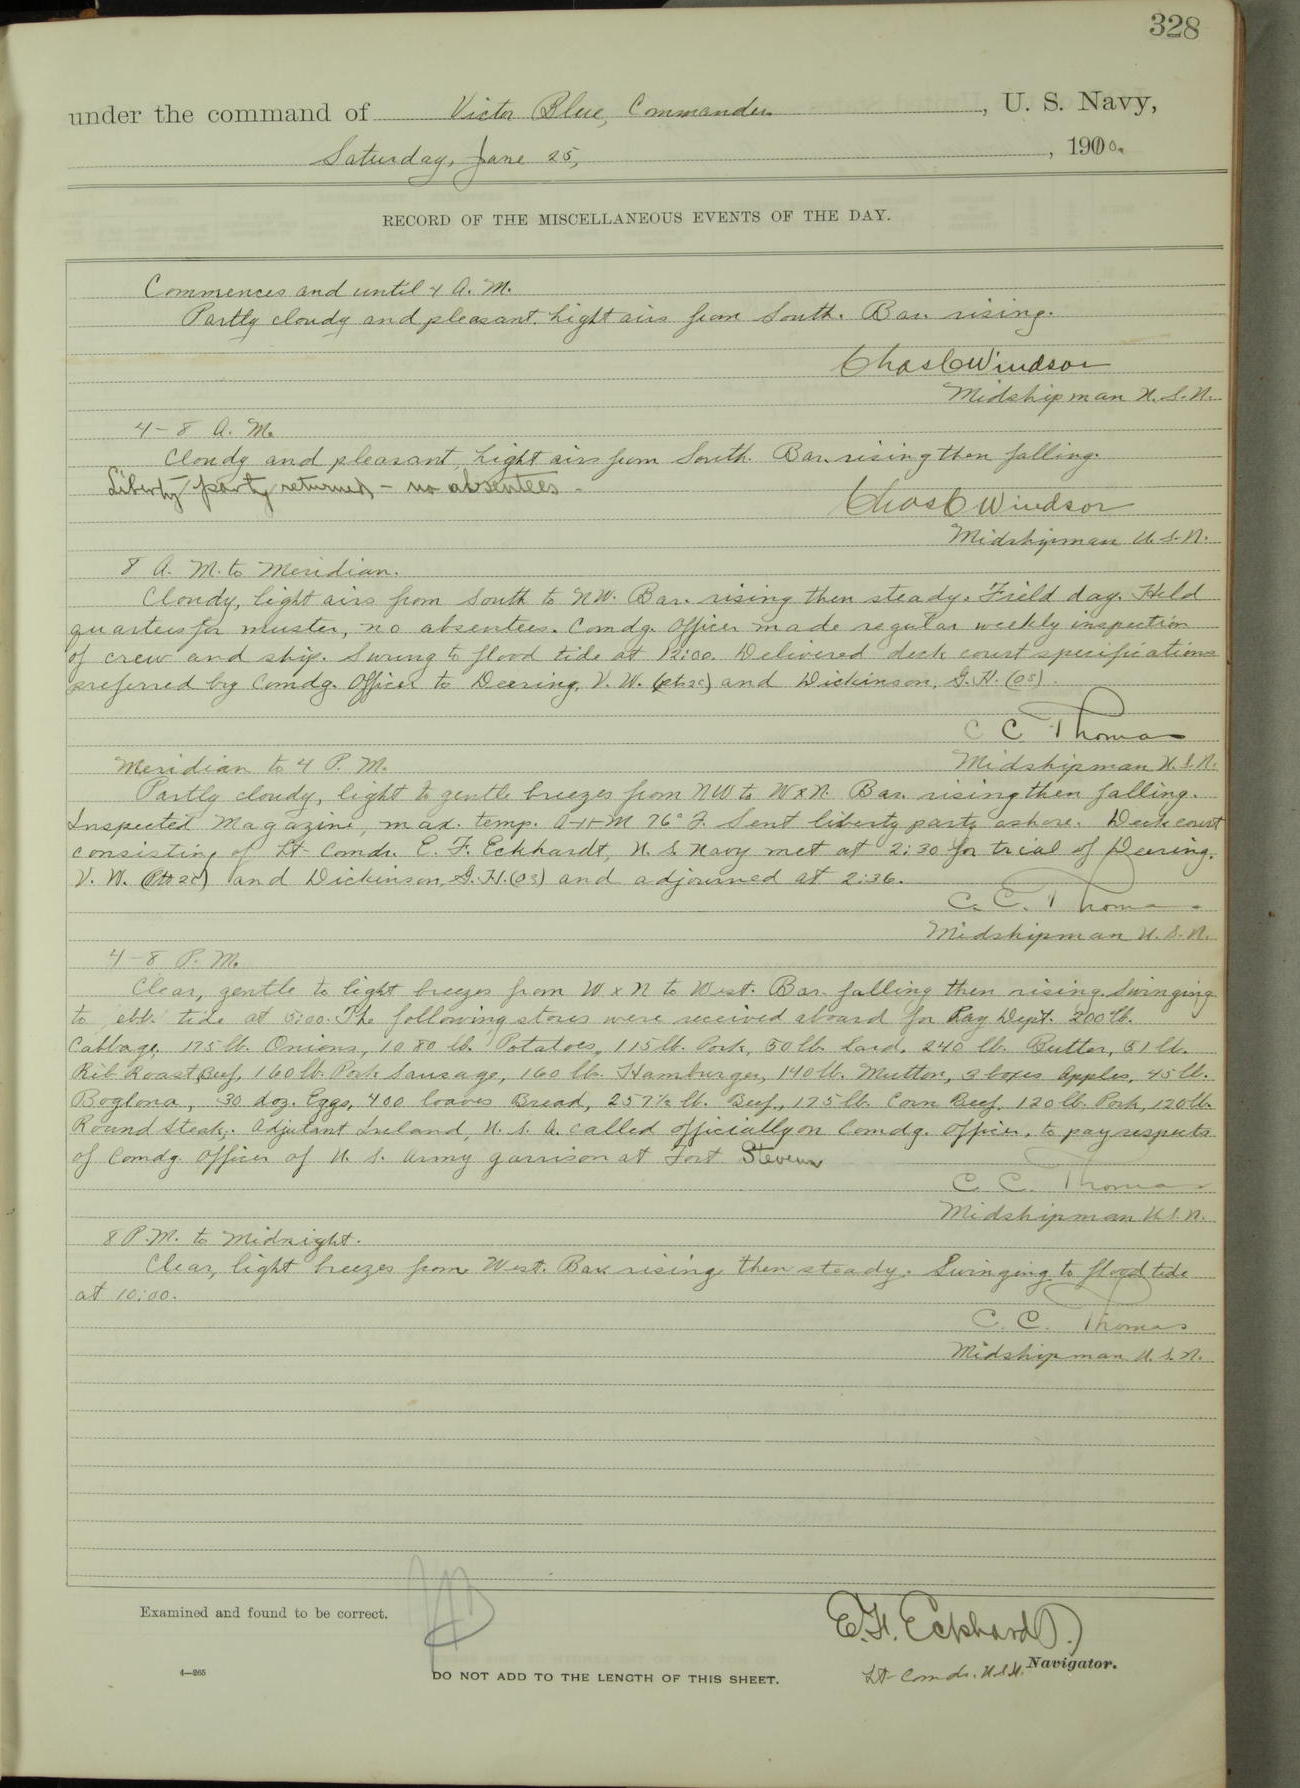 328
under the command of Victor Blue, Commander. , U. S. Navy,
Saturday, June 25, , 190
RECORD OF THE MISCELLANEOUS EVENTS OF THE DAY.
Commences and until 4 A. M.
Partly cloudy and pleasant. Light airs from South. Bar. rising.
Chas C Windsor
Midshipman U. S. N.
4-8 A. M.
Cloudy and pleasant, light airs from South. Bar. rising then falling.
Liberty party returned - no absentees -
Chas C Windsor
Midshipman U. S. N.
8 A. M. to Meridian.
Cloudy, light airs from South to NW. Bar. rising then steady. Field day. Held
quarters for muster, no absentees. Comdg. Officer made regular weekly inspection
of crew and ship. Swung to flood tide at 12:00. Delivered deck court specifications
preferred by Comdg. Officer to Deering, V. W. and Dickinson, G. H. (OS).
C C Thomas
Meridian to 4 P. M.
Midshipman U. S. N.
Partly cloudy, light to gentle breezes from NW to WxN. Bar. rising then falling.
Inspected Magazine, max. temp. A-H-M 76° F. Sent liberty party ashore. Deck court
consisting of Lt-Comdr. E. F. Eckhardt, U. S. Navy met at 2:30 for trial of Deering,
V. W. and Dickinson, G. H. (OS) and adjourned at 2:36.
C. C. Thomas
Midshipman U. S. N.
4-8 P. M.
Clear, gentle to light breezes from W x N to West. Bar. falling then rising. Swinging
to ebb tide at 5:00. The following stores were received aboard for Pay Dept. 200 lb.
Cabbage, 175 lb. Onions, 1080 lb. Potatoes, 115 lb. Pork, 50 lb. Lard, 240 lb. Butter, 51 lb.
Rib Roast Beef, 160 lb. Pork Sausage, 160 lb. Hamburger, 140 lb. Mutton, 3 boxes Apples, 45 lb.
Boglona, 30 doz. Eggs, 400 loaves Bread, 257½ lb. Beef, 175 lb. Corn Beef, 120 lb. Pork, 120 lb.
Round Steak,. Adjutant Ireland, U. S. A. called officially on Comdg. Officer, to pay respects
of Comdg. Officer of U. S. Army garrison at Fort Stevens
C. C. Thomas
Midshipman U. S. N.
8 P. M. to Midnight.
Clear, light breezes from West. Bar. rising then steady. Swinging to flood tide
at 10:00.
C. C. Thomas
Midshipman U. S. N.
Examined and found to be correct.
E. F. Eckhardt
Lt-Comdr. U.S.N. Navigator.
4—265
DO NOT ADD TO THE LENGTH OF THIS SHEET.